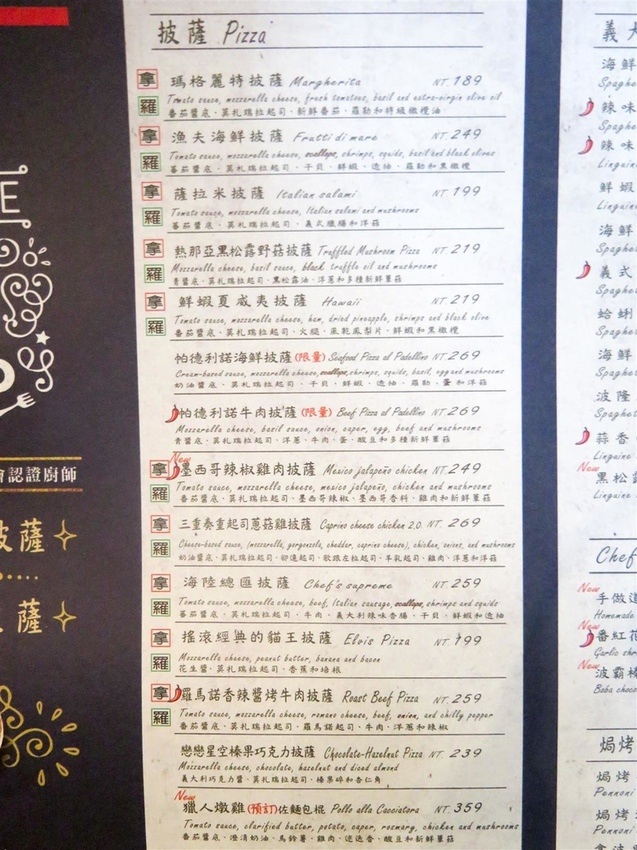 披薩 Pizza
拿 瑪格麗特披薩 Margherita NT 189
羅 Tomato sauce, mozzarella cheese, fresh tomatoes, basil and extra-virgin olive oil
番茄醬底、莫札瑞拉起司、新鮮番茄、羅勒和特級橄欖油
拿 漁夫海鮮披薩 Frutti di mare NT 249
羅 Tomato sauce, mozzarella cheese, scallops, shrimps, squids, basil and black olives
番茄醬底、莫札瑞拉起司、干貝、鮮蝦、透抽、羅勒和黑橄欖
拿 薩拉米披薩 Italian salami NT 199
羅 Tomato sauce, mozzarella cheese, Italian salami and mushrooms
番茄醬底、莫札瑞拉起司、義式臘腸和洋菇
拿 熱那亞黑松露野菇披薩 Truffled Mushroom Pizza NT 219
羅 Mozzarella cheese, basil sauce, black truffle oil and mushrooms
青醬底、莫札瑞拉起司、黑松露油、洋蔥和多種新鮮蕈菇
拿 鮮蝦夏威夷披薩 Hawaii NT 219
羅 Tomato sauce, mozzarella cheese, ham, dried pineapple, shrimps and black olive
番茄醬底、莫札瑞拉起司、火腿、風乾鳳梨片、鮮蝦和黑橄欖
帕德利諾海鮮披薩(限量) Seafood Pizza al Padellino NT 269
Cream-based sauce, mozzarella cheese, scallops, shrimps, squids, basil, egg and mushrooms
奶油醬底、莫札瑞拉起司、干貝、鮮蝦、透抽、羅勒、蛋和洋菇
帕德利諾牛肉披薩(限量) Beef Pizza al Padellino NT 269
Mozzarella cheese, basil sauce, onion, caper, egg, beef and mushrooms
青醬底、莫札瑞拉起司、洋蔥、牛肉、蛋、酸豆和多種新鮮蕈菇
New
拿 墨西哥辣椒雞肉披薩 Mexico jalapeño chicken NT 249
羅 Tomato sauce, mozzarella cheese, mexico jalapeño, chicken and mushrooms
番茄醬底、莫札瑞拉起司、墨西哥辣椒、墨西哥香料、雞肉和新鮮蕈菇
拿 三重奏重起司蔥菇雞披薩 Caprino cheese chicken 2.0 NT. 269
羅 Cheese-based sauce, (mozzarella, gorgonzola, cheddar, caprino cheese), chicken, onions, and mushrooms
奶油醬底、莫札瑞拉起司、切達起司、歌跟左拉起司、羊乳起司、雞肉、洋蔥和洋菇
拿 海陸總匯披薩 Chef's supreme NT 259
羅 Tomato sauce, mozzarella cheese, beef, Italian sausage, scallops, shrimps and squids
番茄醬底、莫札瑞拉起司、牛肉、義大利辣味香腸、干貝、鮮蝦和透抽
拿 搖滾經典的貓王披薩 Elvis Pizza NT 199
羅 Mozzarella cheese, peanut butter, banana and bacon
花生醬、莫札瑞拉起司、香蕉和培根
拿 羅馬諾香辣醬烤牛肉披薩 Roast Beef Pizza NT 259
羅 Tomato sauce, mozzarella cheese, romano cheese, beef, onion, and chilly pepper
番茄醬底、莫札瑞拉起司、羅馬諾起司、牛肉、洋蔥和辣椒
戀戀星空榛果巧克力披薩 Chocolate-Hazelnut Pizza NT 239
Mozzarella cheese, chocolate, hazelnut and diced almond
義大利巧克力醬、莫札瑞拉起司、榛果碎和杏仁角
New
獵人燉雞(預訂)佐麵包棍 Pollo alla Cacciatora NT. 359
Tomato sauce, clarified butter, potato, caper, rosmary, chicken and mushrooms
番茄醬底、澄清奶油、馬鈴薯、雞肉、迷迭香、酸豆和新鮮蕈菇
E
會認證廚師
披薩
薩
義大
海鮮
Spaghe
辣味
Spaghe
辣味
Linguine
鮮蝦
Linguine
海鮮
Spaghet
義式
Spaghe
蛤蜊
Spaghet
海鮮
Spaghet
波隆
Spaghet
蒜香
Linguine
New
黑松露
Linguine
Chef
New
手做道
Homemade
New
番紅花
Garlic shr
New
波霸椿
Boba chocol
焗烤
焗烤
Pennoni
焗烤
Pennoni